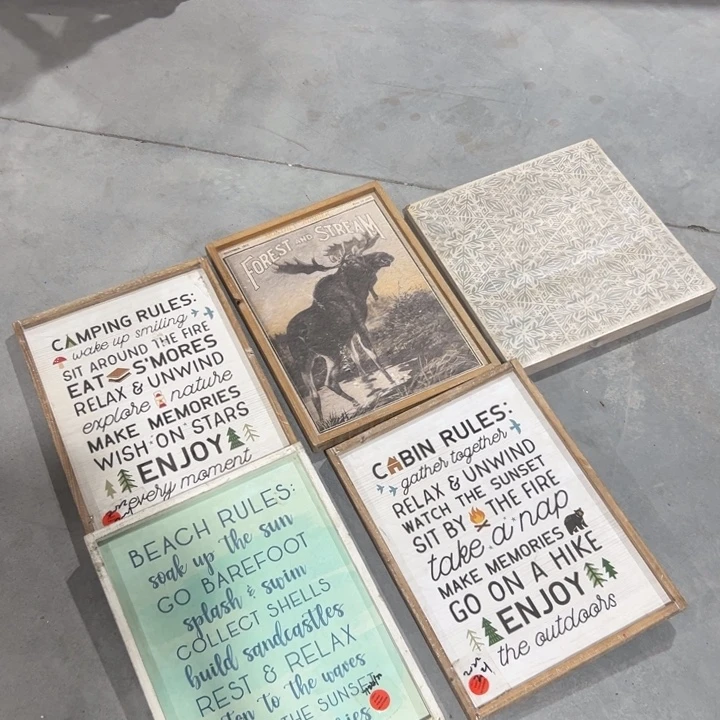 FOREST AND STREAM
CAMPING RULES:
wake up smiling
SIT AROUND THE FIRE
EAT S'MORES
RELAX & UNWIND
explore nature
MAKE MEMORIES
WISH ON STARS
ENJOY
every moment
CABIN RULES:
gather together
RELAX & UNWIND
WATCH THE SUNSET
SIT BY THE FIRE
take a nap
MAKE MEMORIES
GO ON A HIKE
ENJOY
the outdoors
BEACH RULES:
soak up the sun
GO BAREFOOT
splash & swim
COLLECT SHELLS
build sandcastles
REST & RELAX
to the waves
THE SUNSET